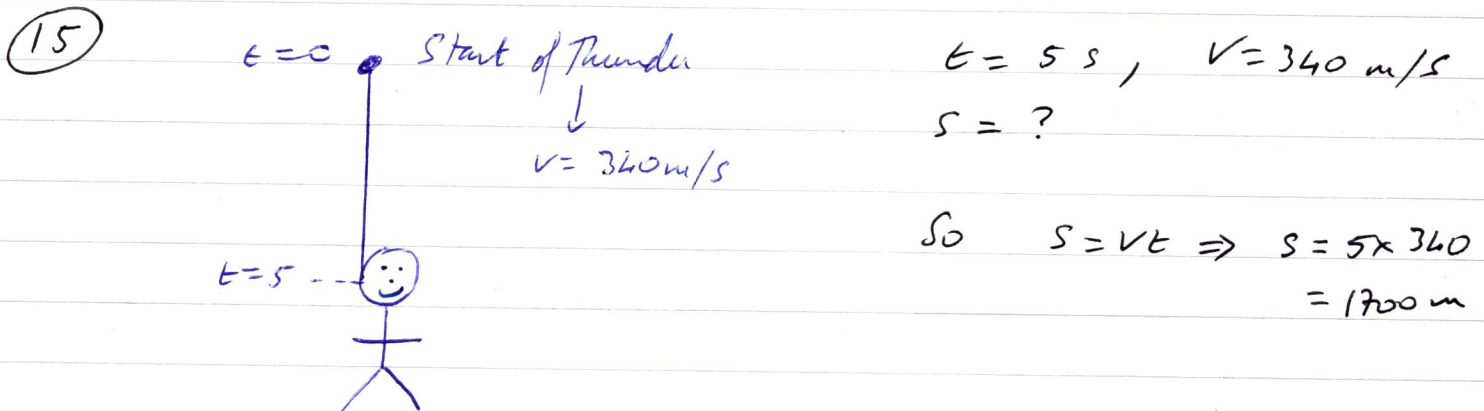 15
t=0 Start of Thunder
↓
v= 340m/s
t=5 ---
t= 5 s, V=340 m/s
s = ?
So s = vt ⇒ s = 5x 340
= 1700 m